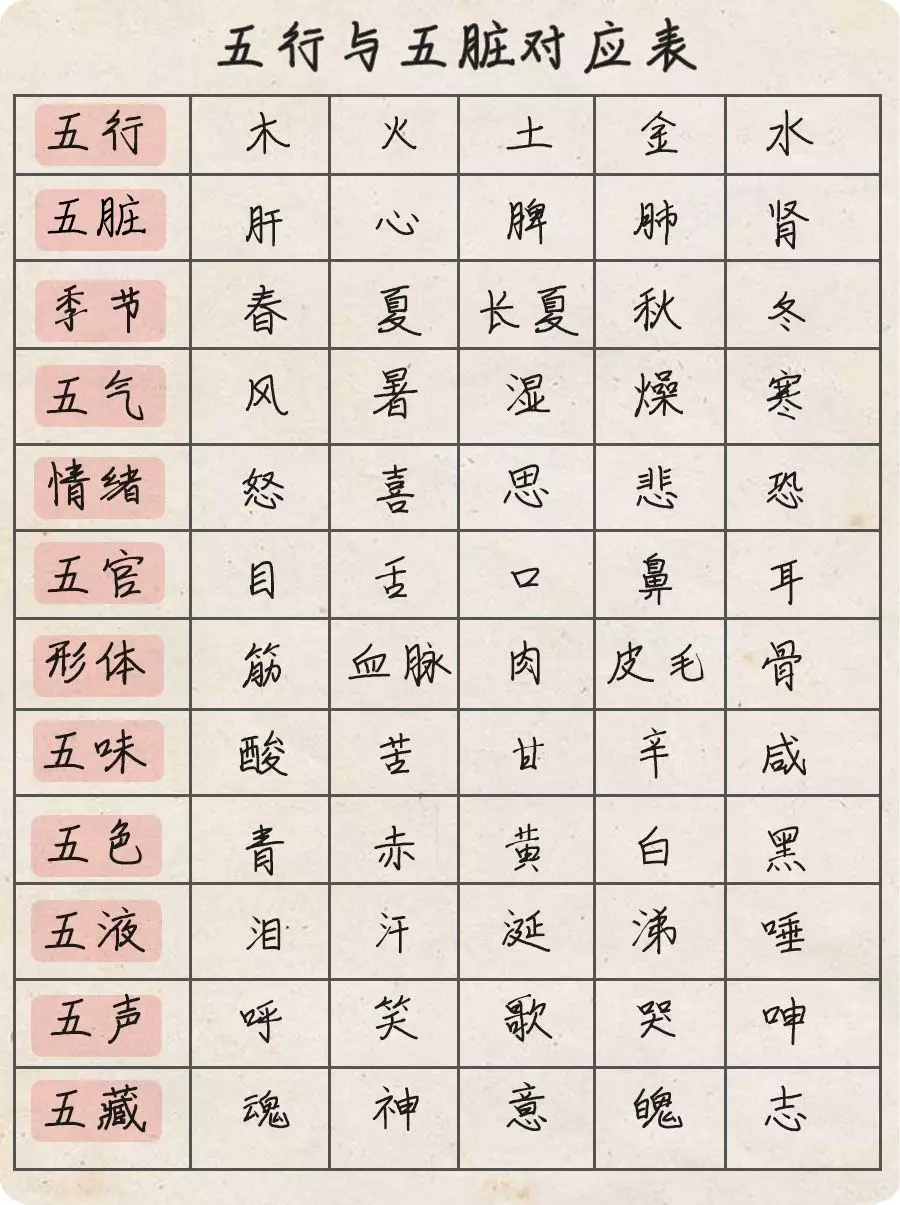 五行与五脏对应表
五行 木 火 土 金 水
五脏 肝 心 脾 肺 肾
季节 春 夏 长夏 秋 冬
五气 风 暑 湿 燥 寒
情绪 怒 喜 思 悲 恐
五官 目 舌 口 鼻 耳
形体 筋 血脉 肉 皮毛 骨
五味 酸 苦 甘 辛 咸
五色 青 赤 黄 白 黑
五液 泪 汗 涎 涕 唾
五声 呼 笑 歌 哭 呻
五藏 魂 神 意 魄 志